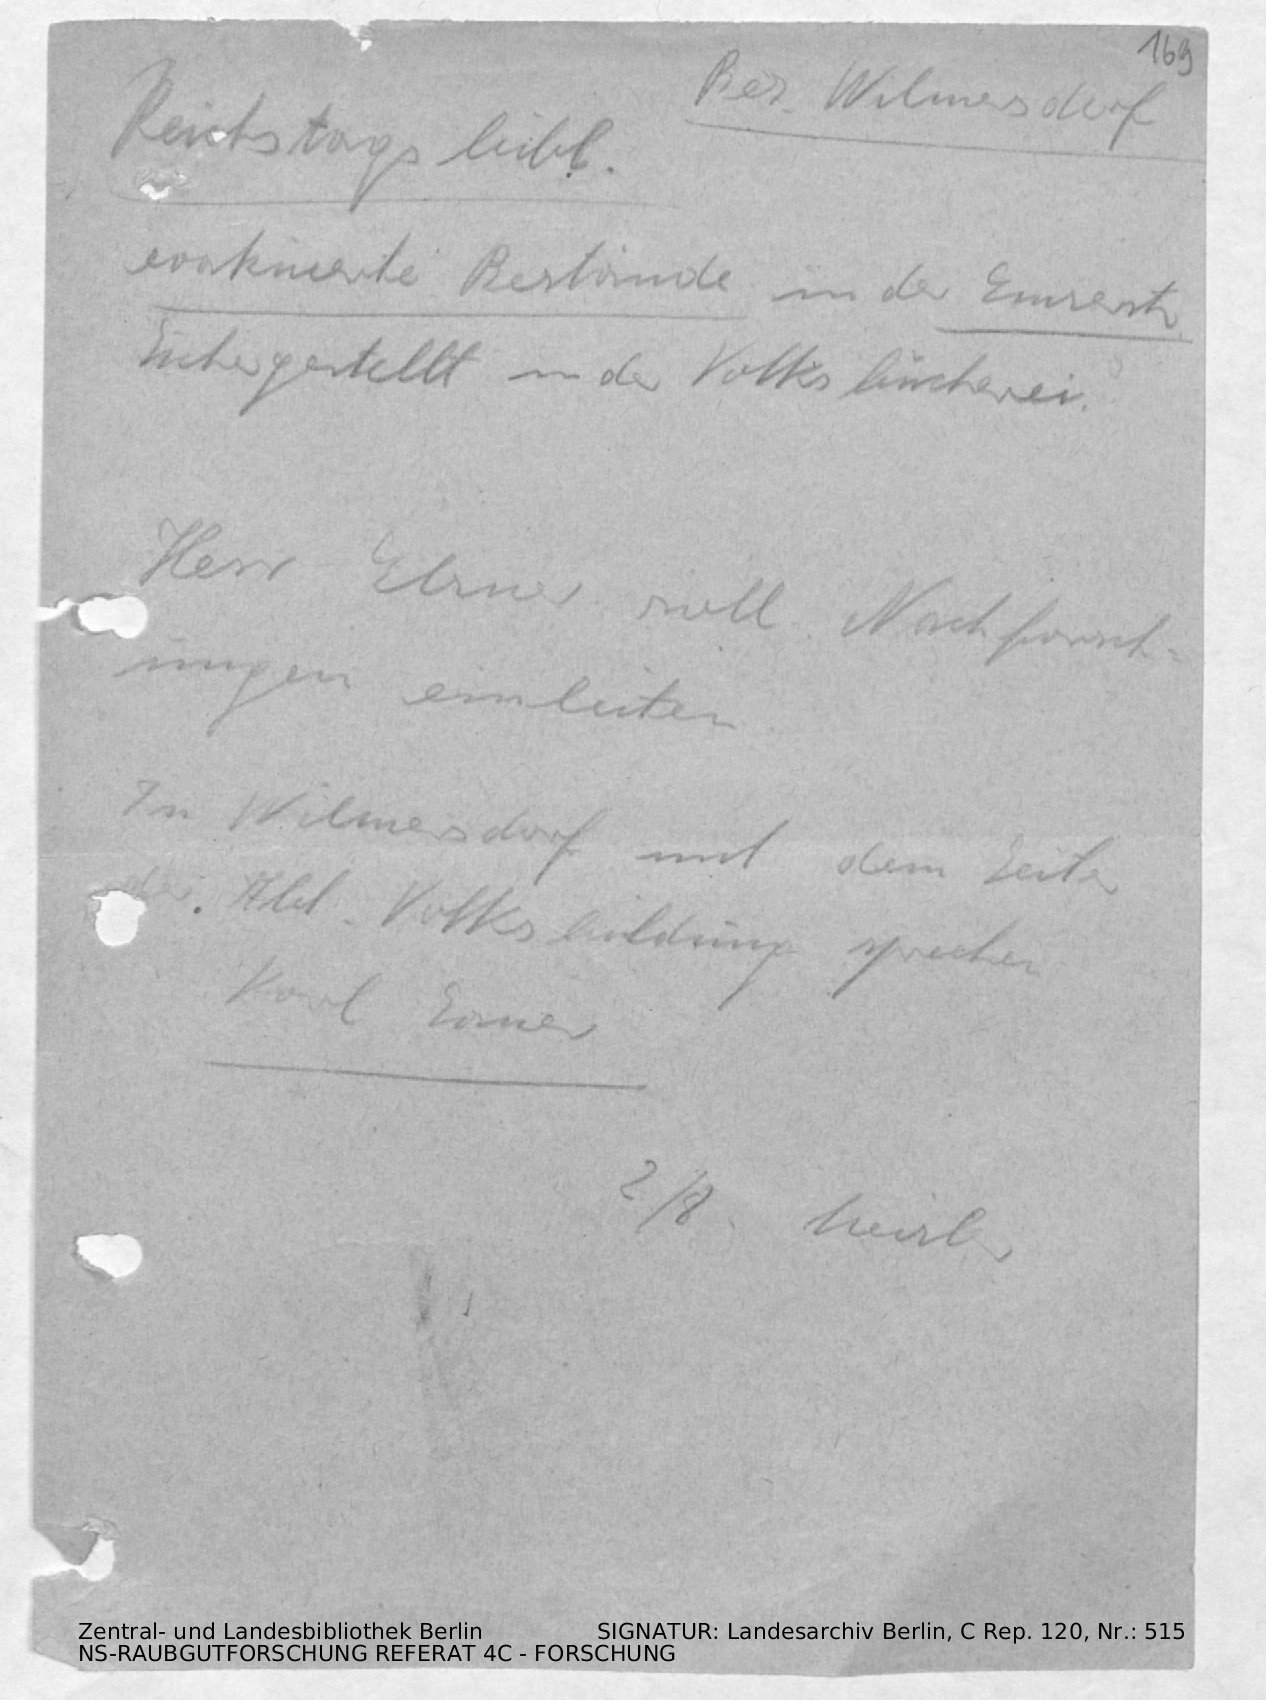 169
Bez. Wilmersdorf
Reichstagsbibl.
evakuierte Bestände in der Emserstr.
Sichergestellt in der Volksbücherei.
Herr Elsner soll Nachforsch-
ungen einleiten
In Wilmersdorf mit dem Leiter
der Abt. Volksbildung sprechen
Karl
2/8.
Zentral- und Landesbibliothek Berlin SIGNATUR: Landesarchiv Berlin, C Rep. 120, Nr.: 515
NS-RAUBGUTFORSCHUNG REFERAT 4C - FORSCHUNG